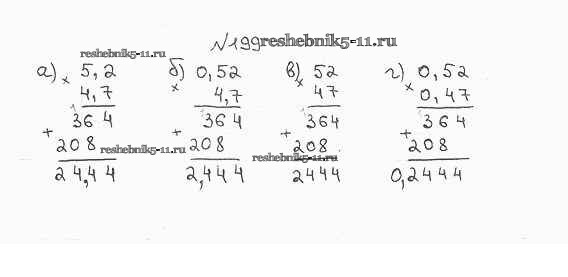 №199 reshebnik5-11.ru
reshebnik5-11.ru
а) × 5,2 б) × 0,52 в) × 52 г) × 0,52
4,7 4,7 47 0,47
364 364 364 364
+ 208 + 208 + 208 + 208
reshebnik5-11.ru reshebnik5-11.ru
24,44 2,444 2444 0,2444